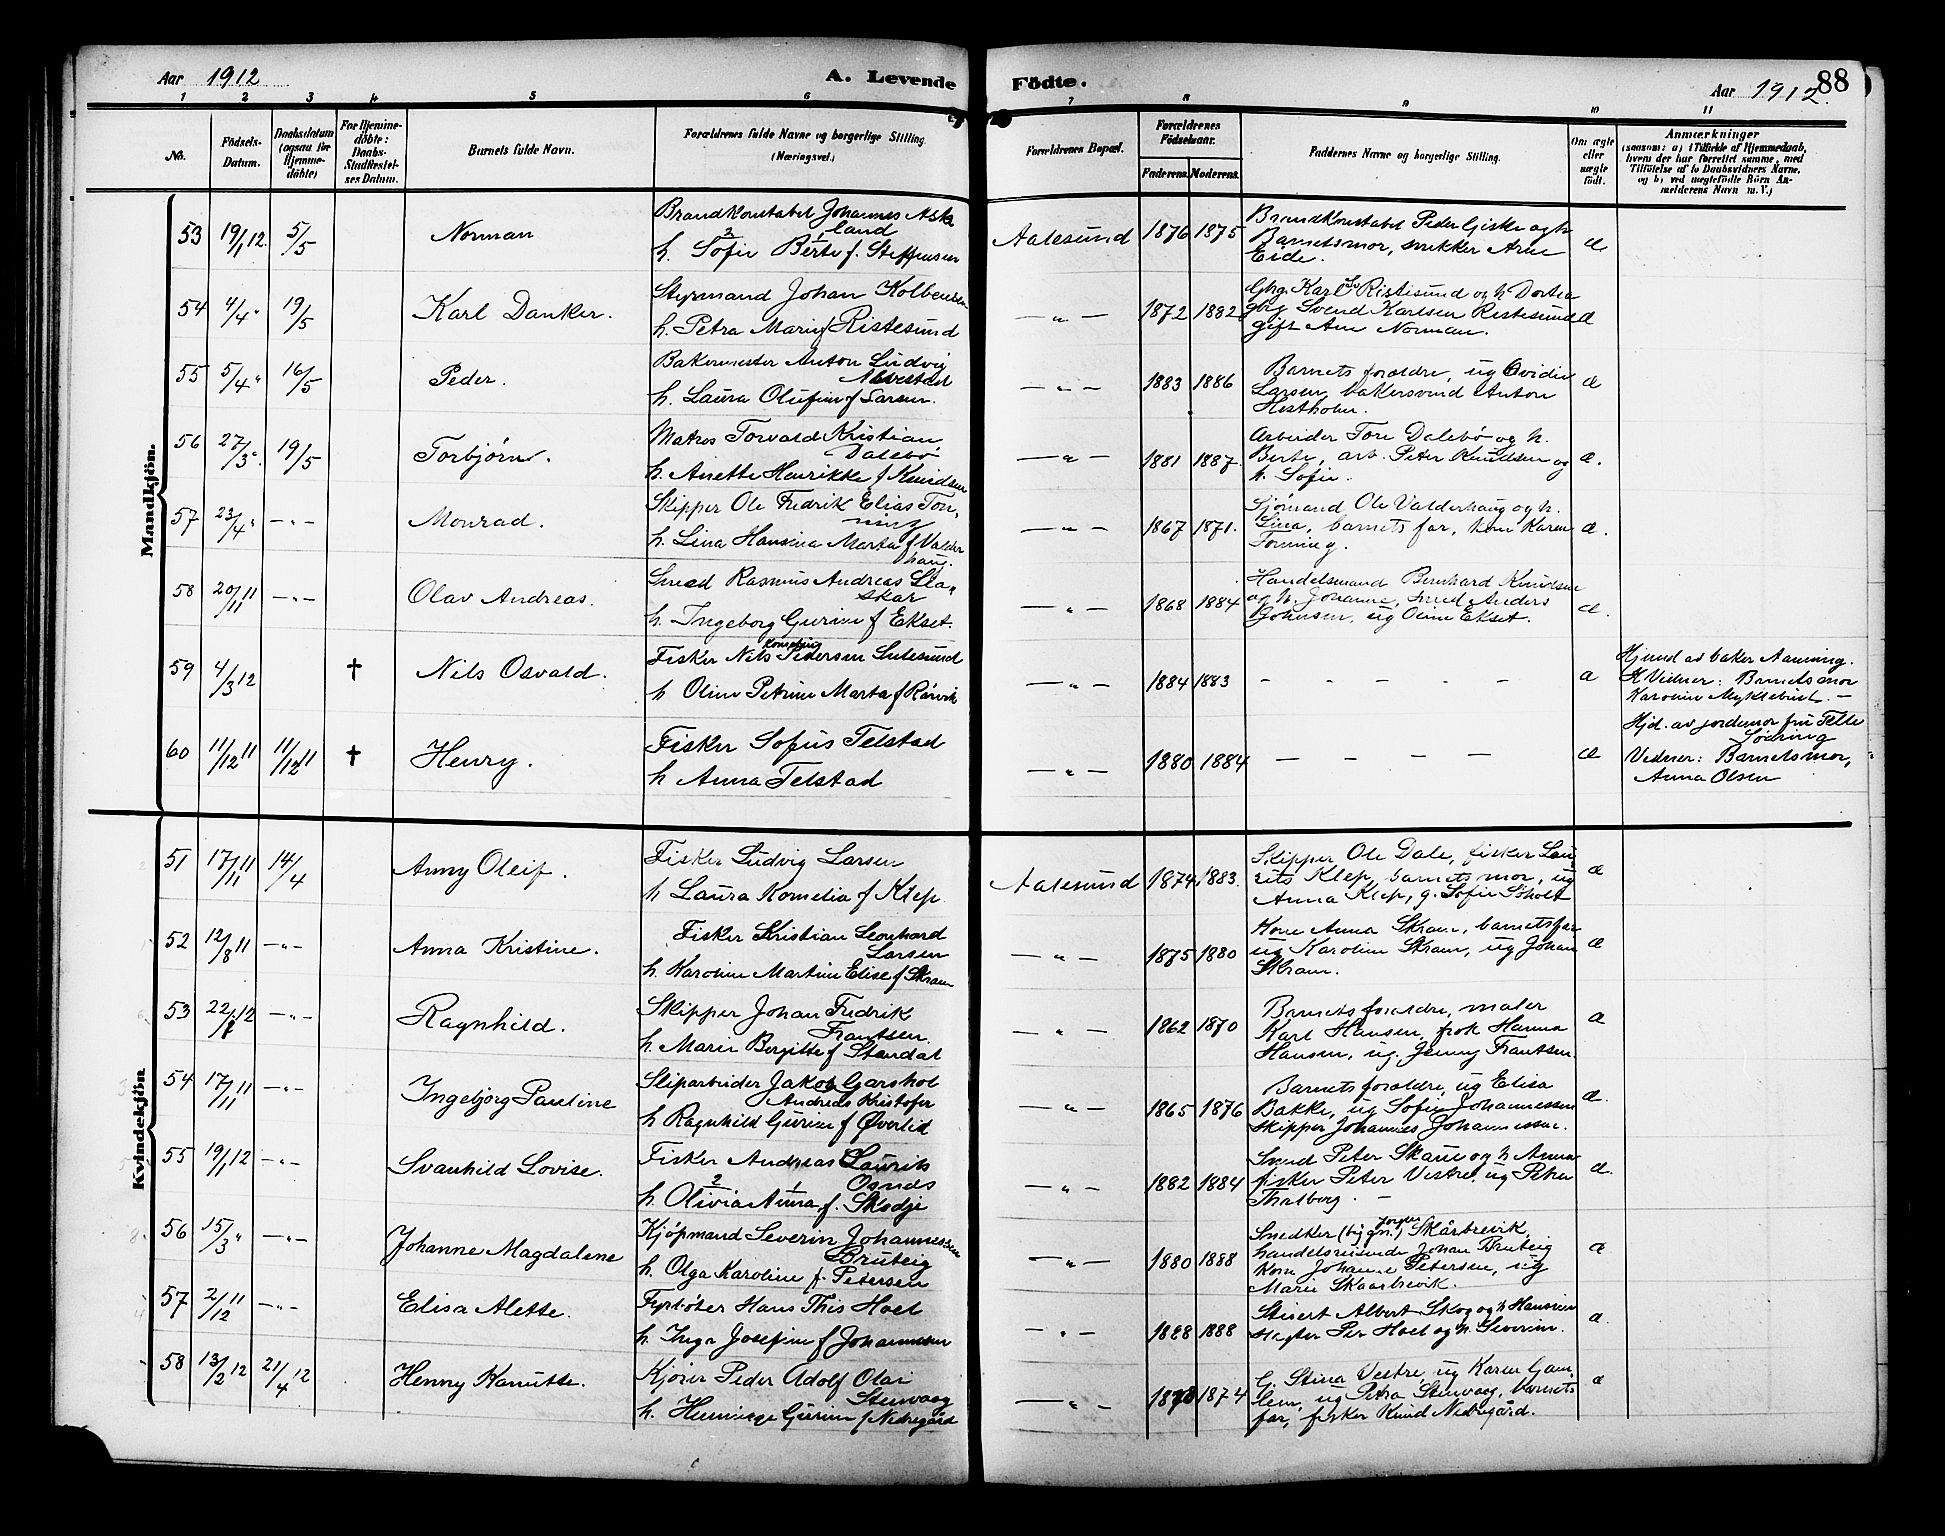 Aar 1912
A. Levende
Födte.
Aar 1912.
88
1 2 3 4 5 6 7 8 9 10 11
No.
Födsels-
Datum.
Daabsdatum
(ogsaa for
Hjemme-
döbte)
For Hjemme-
döbte:
Daabs-
Stadfæstel-
ses Datum.
Barnets fulde Navn.
Forældrenes fulde Navne og borgerlige Stilling.
(Næringsvei.)
Forældrenes Bopæl.
Forældrenes
Födselsaar.
Faderens. Moderens.
Faddernes Navne og borgerlige Stilling.
Om ægte
eller
uægte
födt.
Anmærkninger
(saasom: a) i Tilfælde af Hjemmedaab,
hvem der har forrettet samme, med
Tilföielse af to Daabsvidners Navne.
og b) ved uægtefödte Börn An-
melderens Navn m. V.)
Mandkjön.
53 19/1 12. 5/5 Norman
Brandkonstabel Johannes Ask
land
h. Sofie Berte f. Steffensen
Aalesund 1876 1875
Brandkonstabel Peder Giske og h
Barnets mor, snekker Arne
Eide.
æ
54 4/4 " 19/5 Karl Danker.
Styrmand Johan Kolbensen
h. Petra Marie f Ristesund
— " — 1872 1882
Gbg. Karl Ristesund og h Dortea
gbg Svend Karlsen Ristesund
gift Ane Norman.
æ
55 5/4 " 16/5 Peder.
Bakermester Anton Ludvig
Alvestad
h. Laura Olufine f Larsen.
— " — 1883 1886
Barnets forældre, ug Ovidie
Larsen, bakersvend Anton
Hestholm.
æ
56 27/3 " 19/5 Torbjørn.
Matros Torvald Kristian
Dalebö
h. Anette Henrikke f Knudsen
— " — 1881 1887.
Arbeider Tore Dalebö og h.
Berte, arb. Peter Knudsen og
h. Sofie.
æ.
57 23/4 " — " — Monrad.
Skipper Ole Fredrik Elias Ton-
ning
h. Lina Hansina Marta f Valder
haug.
— " — 1867 1871.
Sjömand Ole Valderhaug og h.
Lina, barnets far, kone Karen
Tonning.
æ.
58 20/11 11 — " — Olav Andreas.
Smed Rasmus Andreas Lia-
skar
h. Ingeborg Gurine f Ekset.
— " — 1868 1884
Handelsmand Bernhard Knudsen
og h. Johanne, smed Anders
Johnsen, ug Oline Ekset.
æ.
59 4/3 12 † Nils Osvald.
Fisker Nils Pedersen Sulesund
h Oline Petrine Marta f Rörvik
— " — 1884 1883 - - - - - æ
Hjmd av baker Aanning.
Vidner: Barnets mor
Karoline Myklebust. —
60 11/12 11 11/12 11 † Henry.
Fisker Sofus Telstad
h Anna Telstad
— " — 1880 1884 — — — — æ
Hjd. av jordemor fru Telle
Södring
Vidner: Barnets mor,
Anna Olsen
Kvindekjön
51 17/11 11 14/4 Anny Oleif.
Fisker Ludvig Larsen
h Laura Kornelia f Klep
Aalesund 1874 1883.
Skipper Ole Dale, fisker Lau-
rits Klep, barnets mor, ug
Anna Klep, g. Sofie Sjöholt
æ
52 12/8 11 — " — Anna Kristine.
Fisker Kristian Leonhard
Larsen
h. Karoline Martine Elise f Skram
— " — 1875 1880
Kone Anna Skram, barnets far
ug Karoline Skram, ug Johan
Skram.
æ
53 22/1 12 — " — Ragnhild.
Skipper Johan Fredrik
Frantsen.
h. Marie Bergitte f Standal
— " — 1862 1870
Barnets forældre, maler
Karl Hansen, frøk Hanna
Hansen, ug. Jenny Frantsen.
æ
54 17/11 11 — " — Ingebjörg Pauline
Sliparbeider Jakob Garshol
Andreas Kristofer
h Ragnhild Gurine f Øverlid
— " — 1865 1876
Barnets forældre, ug Elisa
Bakke, ug Sofie Johannessen
Skipper Johannes Johannessen.
æ.
55 19/1 12 — " — Svanhild Lovise.
Fisker Andreas Laurits
Osnes
h Olivia Anna f. Skodje
— " — 1882 1884
Smed Peter Skaue og h Anna
fisker Peter Vestre, ug Petra
Thalberg. —
æ.
56 15/3 " — " — Johanne Magdalene
Kjöpmand Severin Johannessen
Bruteig
h. Olga Karoline f. Petersen
— " — 1880 1888
Snedker (bygn.) Jörgen Skårbrevik,
handelsreisende Johan Bruteig
kone Johanne Petersen, ug
Marie Skaarbrevik.
æ
57 2/12 11 — " — Elisa Alette.
Fyrböter Hans This Hoel
h. Inga Josefine f Johannessen
— " — 1888 1888
Stuert Albert Skog og h Hansine
slagter Per Hoel og h. Severine.
æ.
58 13/2 12 21/4 12 Henny Kanutte.
Kjörer Peder Adolf Olai
Stenvaag
h. Henninge Gurine f Nedregård
— " — 1870 1874
G. Stina Vestre, ug Karen Gam-
lem, ug Petra Stenvaag, barnets
far, fisker Knud Nedregård.
æ